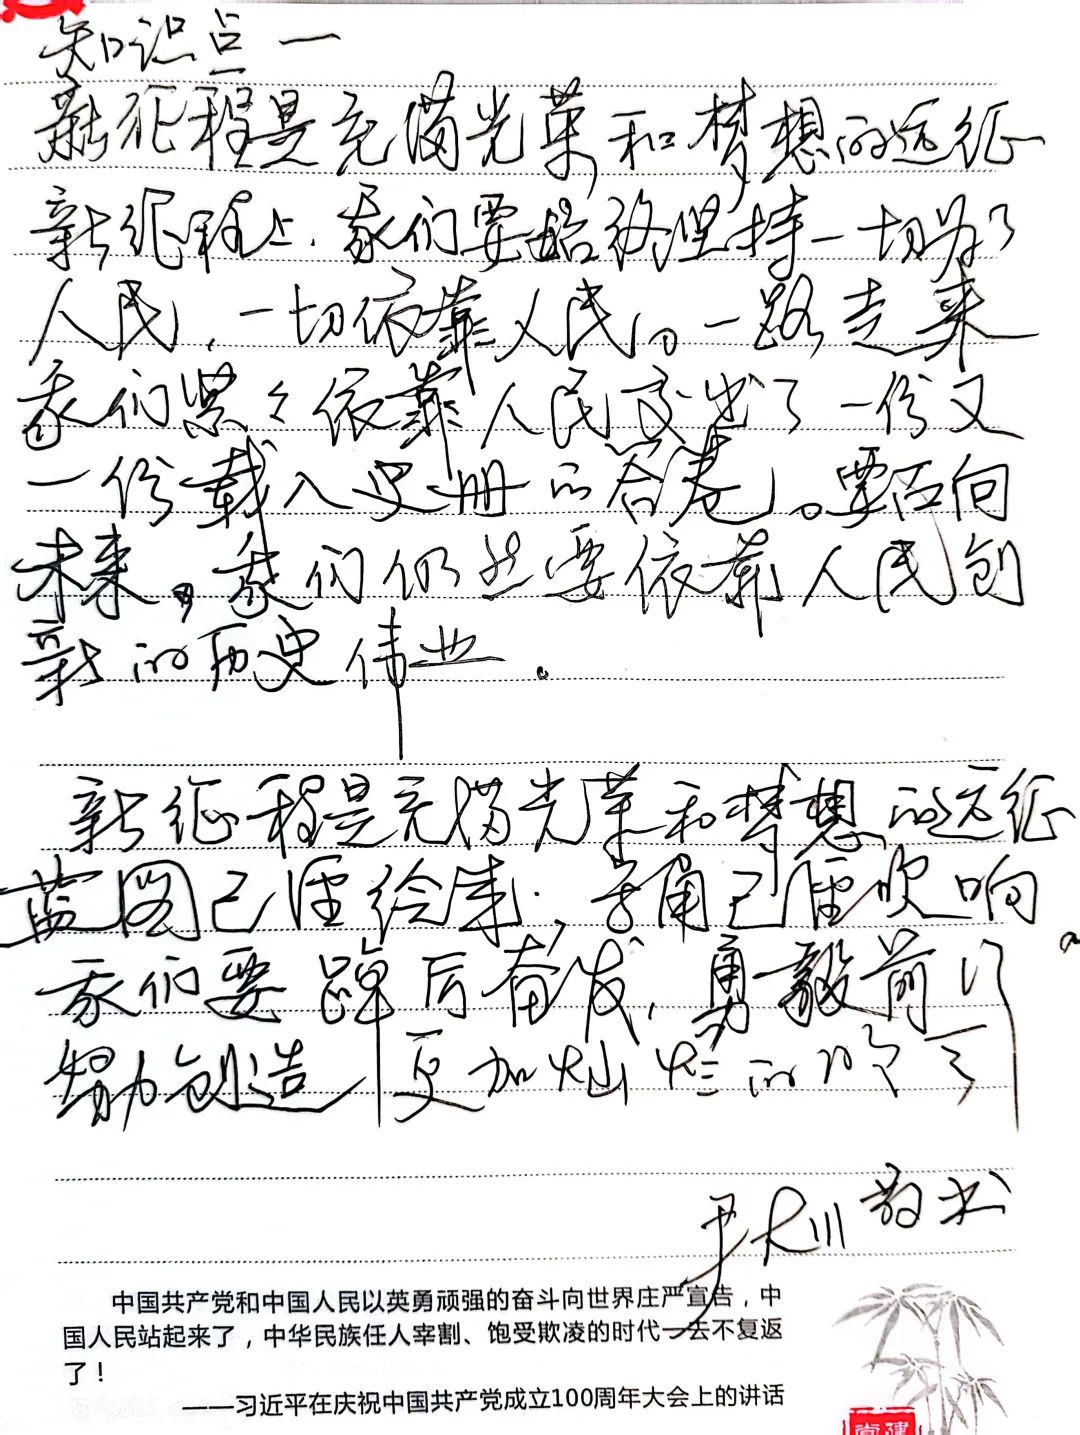 知识点一
新征程是充满光荣和梦想的远征
新征程上，我们要始终坚持一切为了
人民，一切依靠人民。一路走来
我们紧々依靠人民交出了一份又
一份载入史册的答卷。要面向
未来，我们仍然要依靠人民创
新的历史伟业。
新征程是充满光荣和梦想的远征
蓝图已经绘就，号角已经吹响
我们要踔厉奋发，勇毅前行
努力创造更加灿烂的明天
尹大川敬书
中国共产党和中国人民以英勇顽强的奋斗向世界庄严宣告，中
国人民站起来了，中华民族任人宰割、饱受欺凌的时代一去不复返
了！
——习近平在庆祝中国共产党成立100周年大会上的讲话